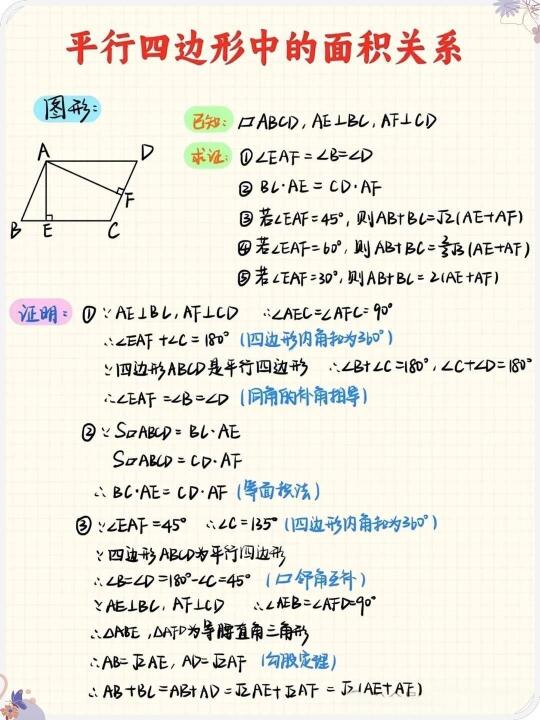 平行四边形中的面积关系
图形:
A
D
F
B
E
C
已知: ▱ABCD, AE⊥BC, AF⊥CD
求证: ①∠EAF=∠B=∠D
② BC·AE=CD·AF
③ 若∠EAF=45°, 则AB+BC=√2(AE+AF)
④ 若∠EAF=60°, 则AB+BC=2/3√3(AE+AF)
⑤ 若∠EAF=30°, 则AB+BC=2(AE+AF)
证明: ① ∵AE⊥BC, AF⊥CD ∴∠AEC=∠AFC=90°
∴∠EAF+∠C=180° (四边形内角和为360°)
∵四边形ABCD是平行四边形 ∴∠B+∠C=180°, ∠C+∠D=180°
∴∠EAF=∠B=∠D (同角的补角相等)
② ∵S▱ABCD=BC·AE
S▱ABCD=CD·AF
∴ BC·AE=CD·AF (等面积法)
③ ∵∠EAF=45° ∴∠C=135° (四边形内角和为360°)
∵四边形ABCD为平行四边形
∴∠B=∠D=180°-∠C=45° (▱邻角互补)
∵AE⊥BC, AF⊥CD ∴∠AEB=∠AFD=90°
∴△ABE, △AFD为等腰直角三角形
∴AB=√2AE, AD=√2AF (勾股定理)
∴AB+BC=AB+AD=√2AE+√2AF=√2(AE+AF)